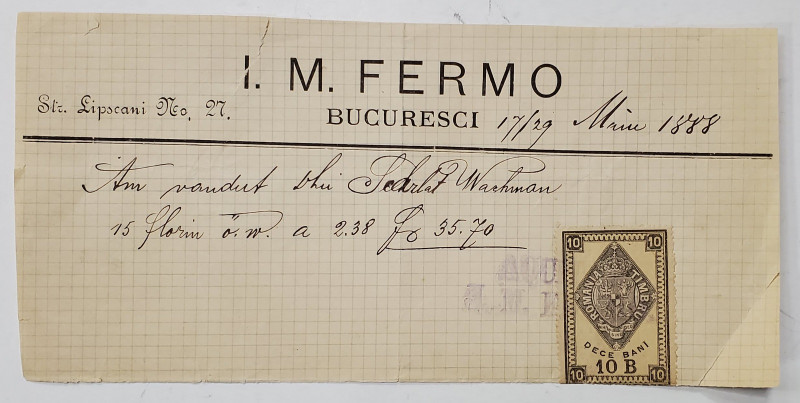 I. M. FERMO
Str. Lipscani No. 27.
BUCURESCI 17/29 Maiu 1888
Am vandut Dlui Scarlat Wachman
15 florin ö. w. a 2.38 fr 35.70
10 10
ROMANIA TIMBRU
DECE BANI
10 10 B 10